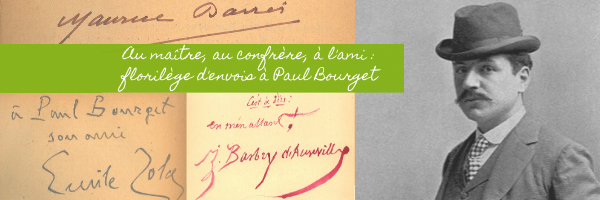 Maurice Barrès
Au maître, au confrère, à l'ami :
florilège d'envois à Paul Bourget
à Paul Bourget
son ami
Emile Zola
C'est à dire :
en m'en allant !
J. Barbey d'Aurevilly